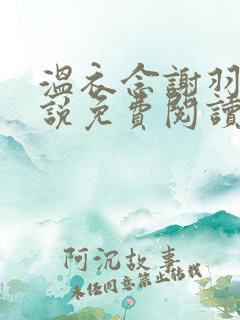 溫衣念謝羽
說免費閱讀
阿沉故事
未經同意禁止轉載